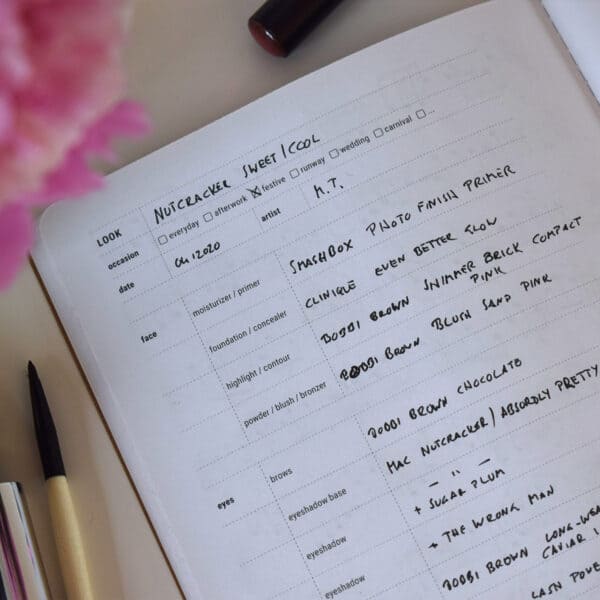 LOOK NUTCRACKER SWEET / COOL
occasion □ everyday □ afterwork ☒ festive □ runway □ wedding □ carnival □ ...
date 04 12020 artist M.T.
face moisturizer / primer SMASHBOX PHOTO FINISH PRIMER
foundation / concealer CLINIQUE EVEN BETTER GLOW
highlight / contour BOBBI BROWN SHIMMER BRICK COMPACT
PINK
powder / blush / bronzer BOBBI BROWN BLUSH SAND PINK
eyes brows BOBBI BROWN CHOCOLATE
eyeshadow base MAC NUTCRACKER / ABSORDLY PRETTY
eyeshadow — " —
+ SUGAR PLUM
eyeshadow + THE WRONG MAN
BOBBI BROWN LONG-WEA
CAVIAR I
LASH POWE